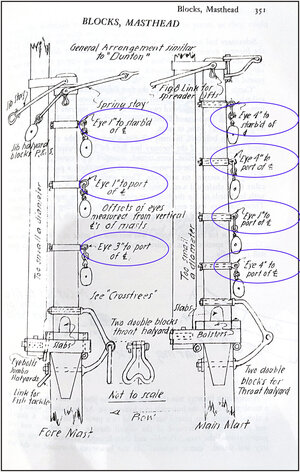 Blocks, Masthead 351
BLOCKS, MASTHEAD
General Arrangement similar
to "Dunton"
Jib Stay
Spring stay
Jib halyard
blocks P.&S.
Eye 1" to starb'd
of ℄
Eye 1" to port
of ℄
Offsets of eyes
measured from vertical
℄'s of masts
Eye 3" to port
of ℄
Too small a diameter
See "Crosstrees"
Two double blocks
throat halyard
Slabs
Eyebolts
Jumbo
Halyards
Link for
Fish tackle
Not to scale
Fore Mast
Link for
spreader lifts
Eye 4" to
starb'd of
℄
Eye 4" to
port of ℄
Eye 1" to
port of ℄
Eye 4" to
port of ℄
Too small
a diameter
Slabs
Bolsters
Two double
blocks for
Throat halyard
Main Mast